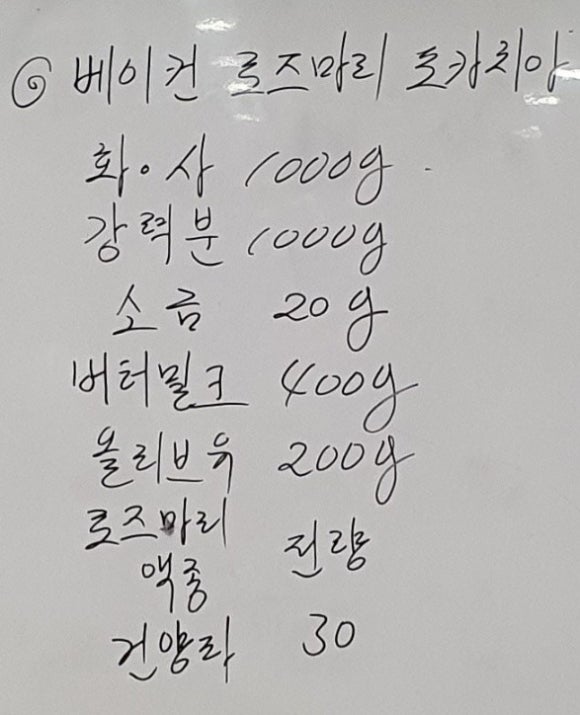 ◎ 베이컨 로즈마리 포카치아
화·사 1000g
강력분 1000g
소금 20g
버터밀크 400g
올리브유 200g
로즈마리
액종 전량
건양파 30